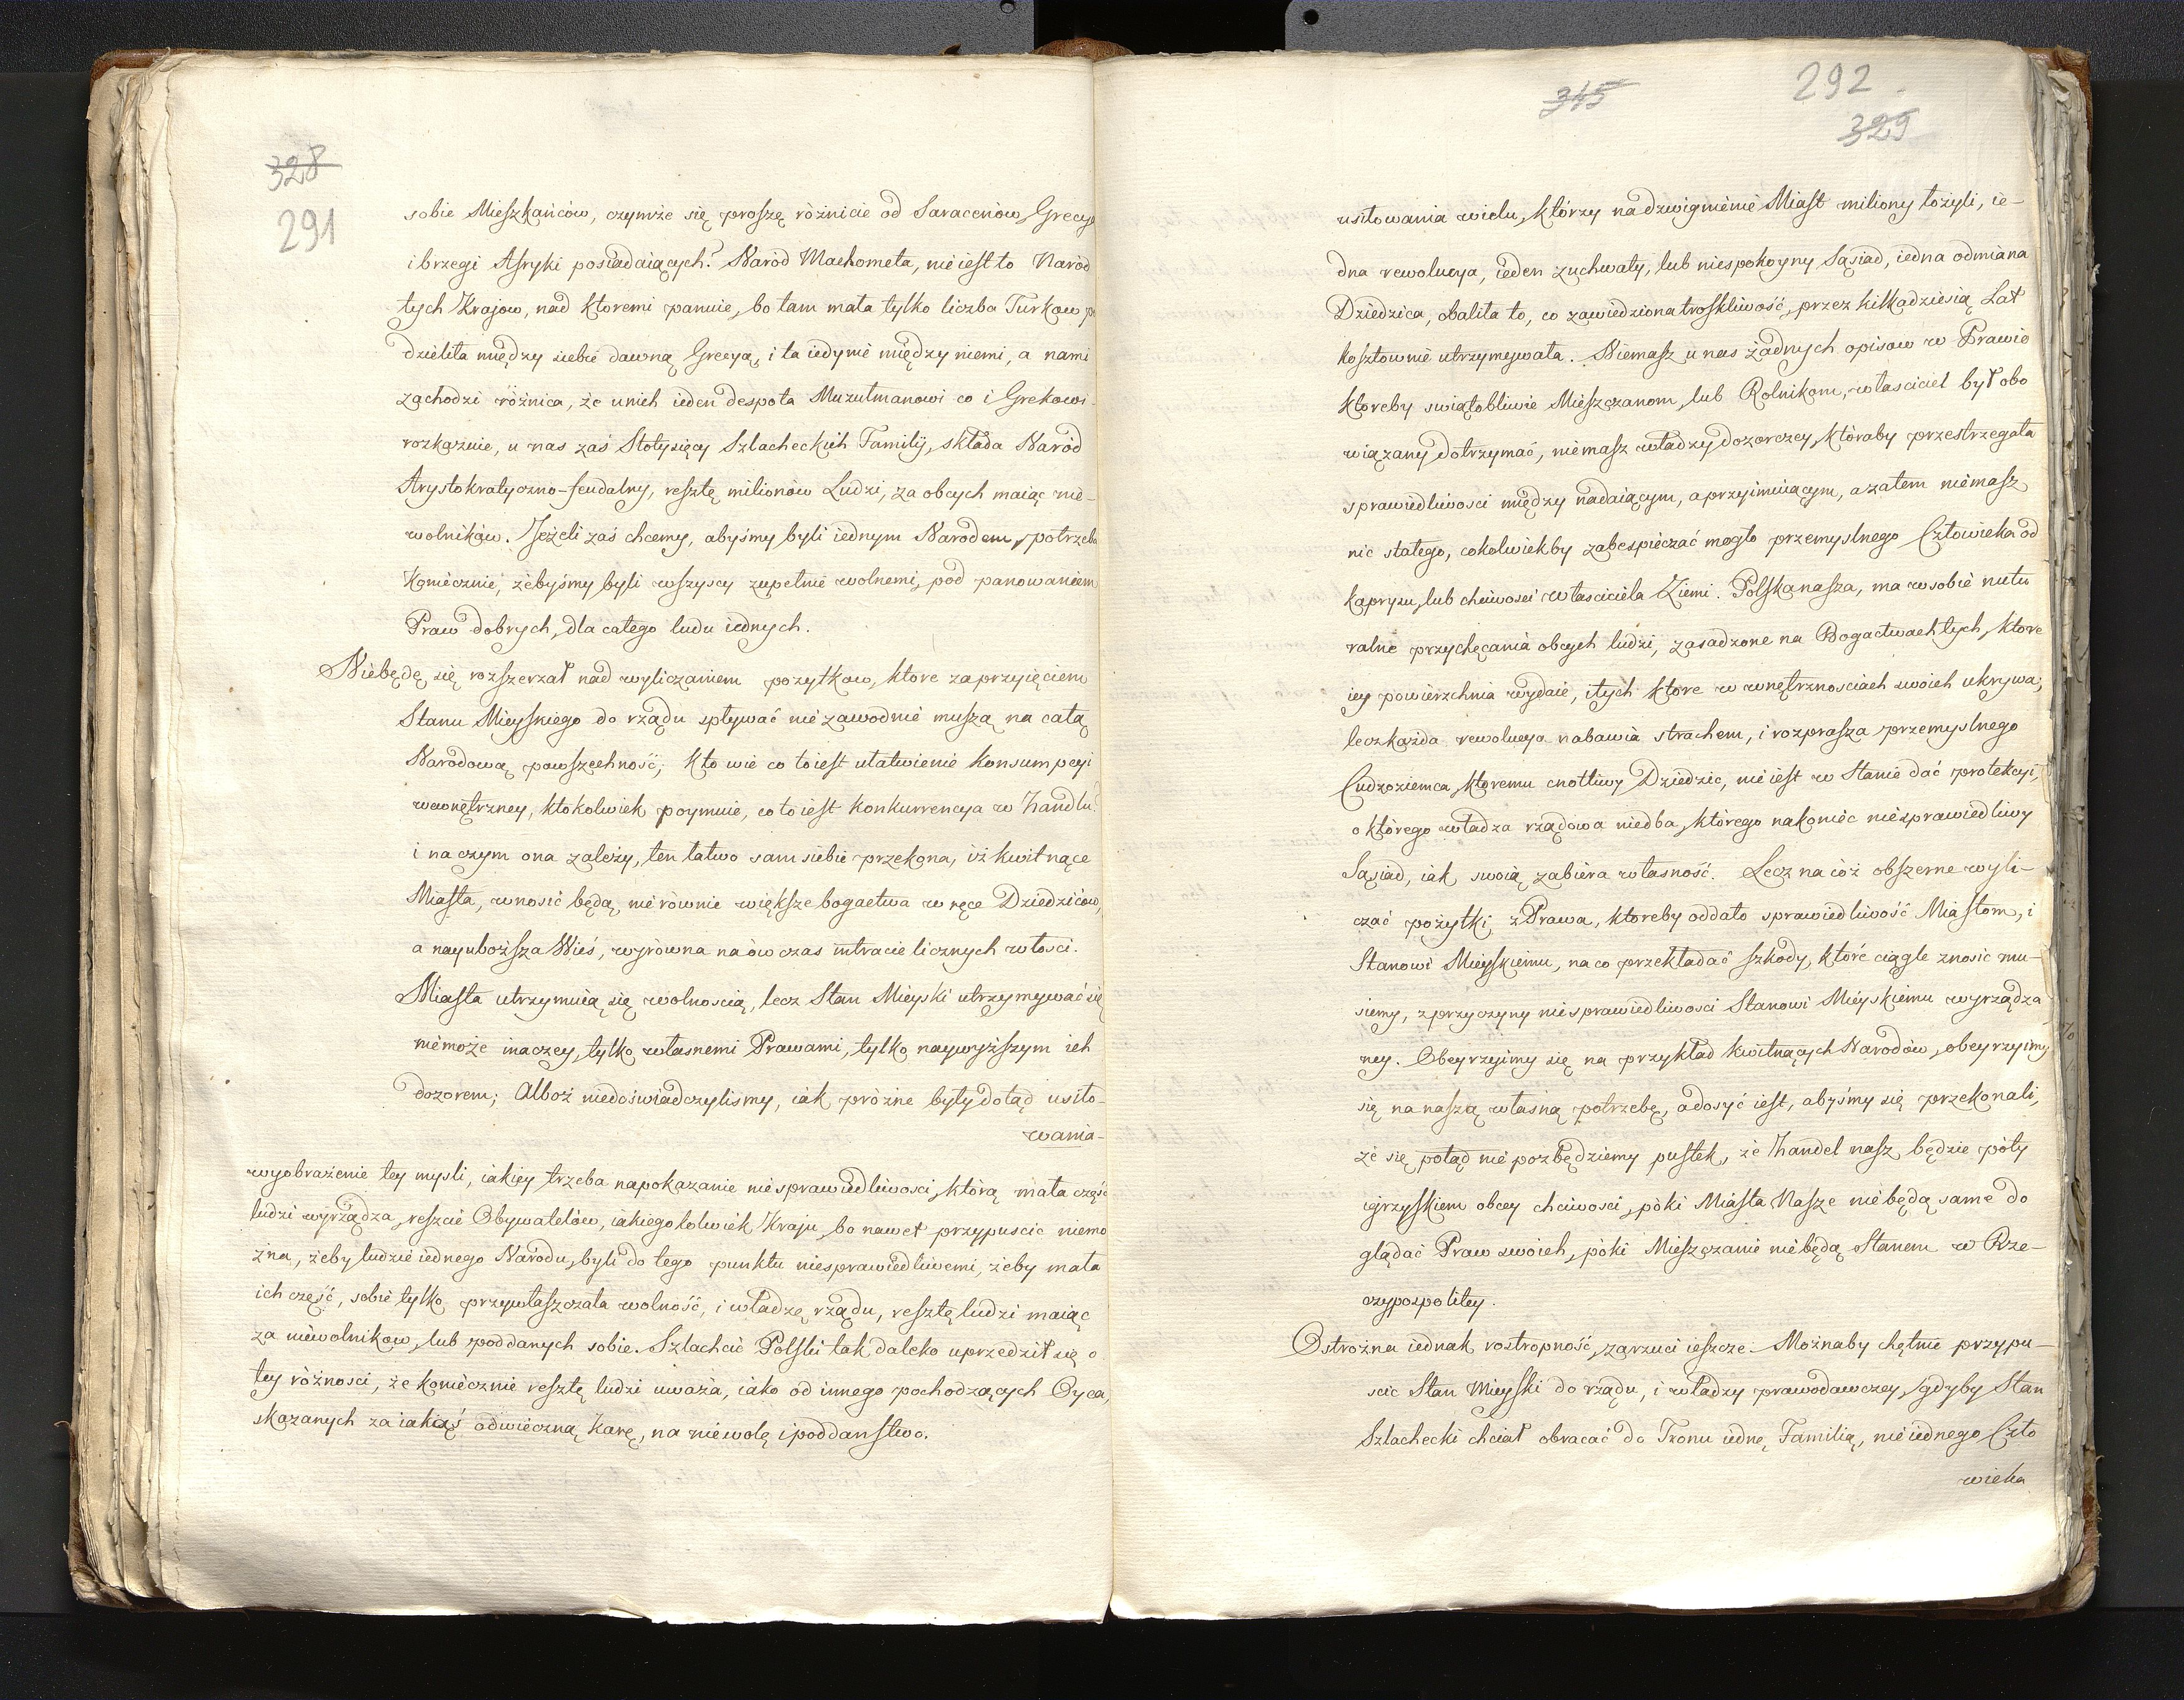 328
291
sobie Mieszkańców, czymże się proszę różnicie od Saracenów Grecyę
i brzegi Afryki posiadaiących? Naród Machometa, nie iest to Naród
tych Krajow, nad ktoremi panuie, bo tam mała tylko liczba Turkow po
dzieliła między siebie dawną Grecyą, i ta iedynie między niemi, a nami
zachodzi różnica, że u nich ieden despota Muzułmanowi co i Grekowi
rozkazuie, u nas zaś Stotysięcy Szlacheckich Familij, składa Naród
Arystokratyczno-feudalny, resztę milionów Ludzi, za obcych maiąc nie-
wolników. Jeżeli zaś chcemy, abyśmy byli iednym Narodem, potrzeba
Koniecznie, żebyśmy byli wszyscy zupełnie wolnemi, pod panowaniem
Praw dobrych, dla całego ludu iednych.
Niebędę się rozszerzał nad wyliczaniem pożytkow, ktore za przyięciem
Stanu Mieyskiego do rządu spływać niezawodnie muszą na całą
Narodową powszechność; Kto wie co to iest ułatwienie konsumpcyi
wewnętrzney, ktokolwiek poymuie, co to iest konkurrencya w handlu?
i na czym ona zależy, ten łatwo sam siebie przekona, iż kwitnące
Miasta, wnosić będą nierównie większe bogactwa w ręce Dziedziców,
a nayuboższa Wieś, wyrówna naówczas intracie licznych włości.
Miasta utrzymuią się wolnoscią, lecz Stan Mieyski utrzymywać się
niemoże inaczey, tylko własnemi Prawami, tylko naywyższym ich
dozorem; Alboż niedoświadczylismy, iak próżne były dotąd usiło-
wania-
wyobrażenie tey mysli, iakiey trzeba na pokazanie niesprawiedliwosci, którą mała część
ludzi wyrządza, reszcie Obywatelów, iakiegokolwiek Kraju, bo nawet przypuscic niemo
żna, żeby ludzie iednego Narodu, byli do tego punktu niesprawiedliwemi, żeby mała
ich część, sobie tylko przywłaszczała wolność, i władzę rządu, resztę ludzi maiąc
za niewolnikow, lub poddanych sobie. Szlachcic Polski tak daleko uprzedził się o
tey różnosci, że koniecznie resztę ludzi uważa, iako od innego pochodzących Oyca,
skazanych za iakąś odwieczną karę, na niewolę i poddanstwo.
315
292
329
usiłowania wielu, którzy na dzwignienie Miast miliony łożyli, ie-
dna rewolucya, ieden zuchwały, lub niespokoyny Sąsiad, iedna odmiana
Dziedzica, obaliła to, co zawiedziona troskliwość, przez kilkadziesią Lat
kosztownie utrzymywała. Niemasz u nas żadnych opisow w Prawie
ktoreby swiątobliwie Mieszczanom, lub Rolnikom, własciciel był obo
wiązany dotrzymać, niemasz władzy dozorczey, któraby przestrzegała
sprawiedliwosci między nadaiącym, a przyimuiącym, a zatem niemasz
nic stałego, cokolwiekby zabespieczać mogło przemyslnego Człowieka od
kaprysu, lub chciwosci własciciela Ziemi. Polska nasza, ma w sobie natu
ralne przychęcania obcych ludzi, zasadzone na Bogactwach tych, ktore
iey powierzchnia wydaie, i tych ktore w wnętrznosciach swoich ukrywa;
lecz każda rewolucya nabawia strachem, i rozprasza przemyslnego
Cudzoziemca, ktoremu cnotliwy Dziedzic, nie iest w Stanie dać protekcyi,
o którego władza rządowa niedba, którego nakoniec niesprawiedliwy
Sąsiad, iak swoią zabiera własność. Lecz na cóż obszerne wyli-
czać pożytki, z Prawa, ktoreby oddało sprawiedliwość Miastom, i
Stanowi Mieyskiemu, na co przekładać szkody, któré ciągle znosic mu-
siemy, z przyczyny niesprawiedliwosci Stanowi Mieyskiemu wyrządza
ney. Obeyrzyimy się na przykład kwitnących Narodów, obeyrzyimy
się na naszą własną potrzebę, a dosyć iest, abyśmy się przekonali,
że się potąd nie pozbędziemy pustek, że handel nasz będzie póty
igrzyskiem obcey chciwosci, póki Miasta Nasze niebędą same do
glądać Praw swoich, póki Mieszczanie niebędą Stanem w Rze-
czypospolitey.
Ostrożna iednak rostropność, zarzuci ieszcze. Możnaby chętnie przypu-
scic Stan Mieyski do rządu, i władzy prawodawczey, gdyby Stan
Szlachecki chciał obracać do Tronu iednę Familią, nie iednego Czło
wieka